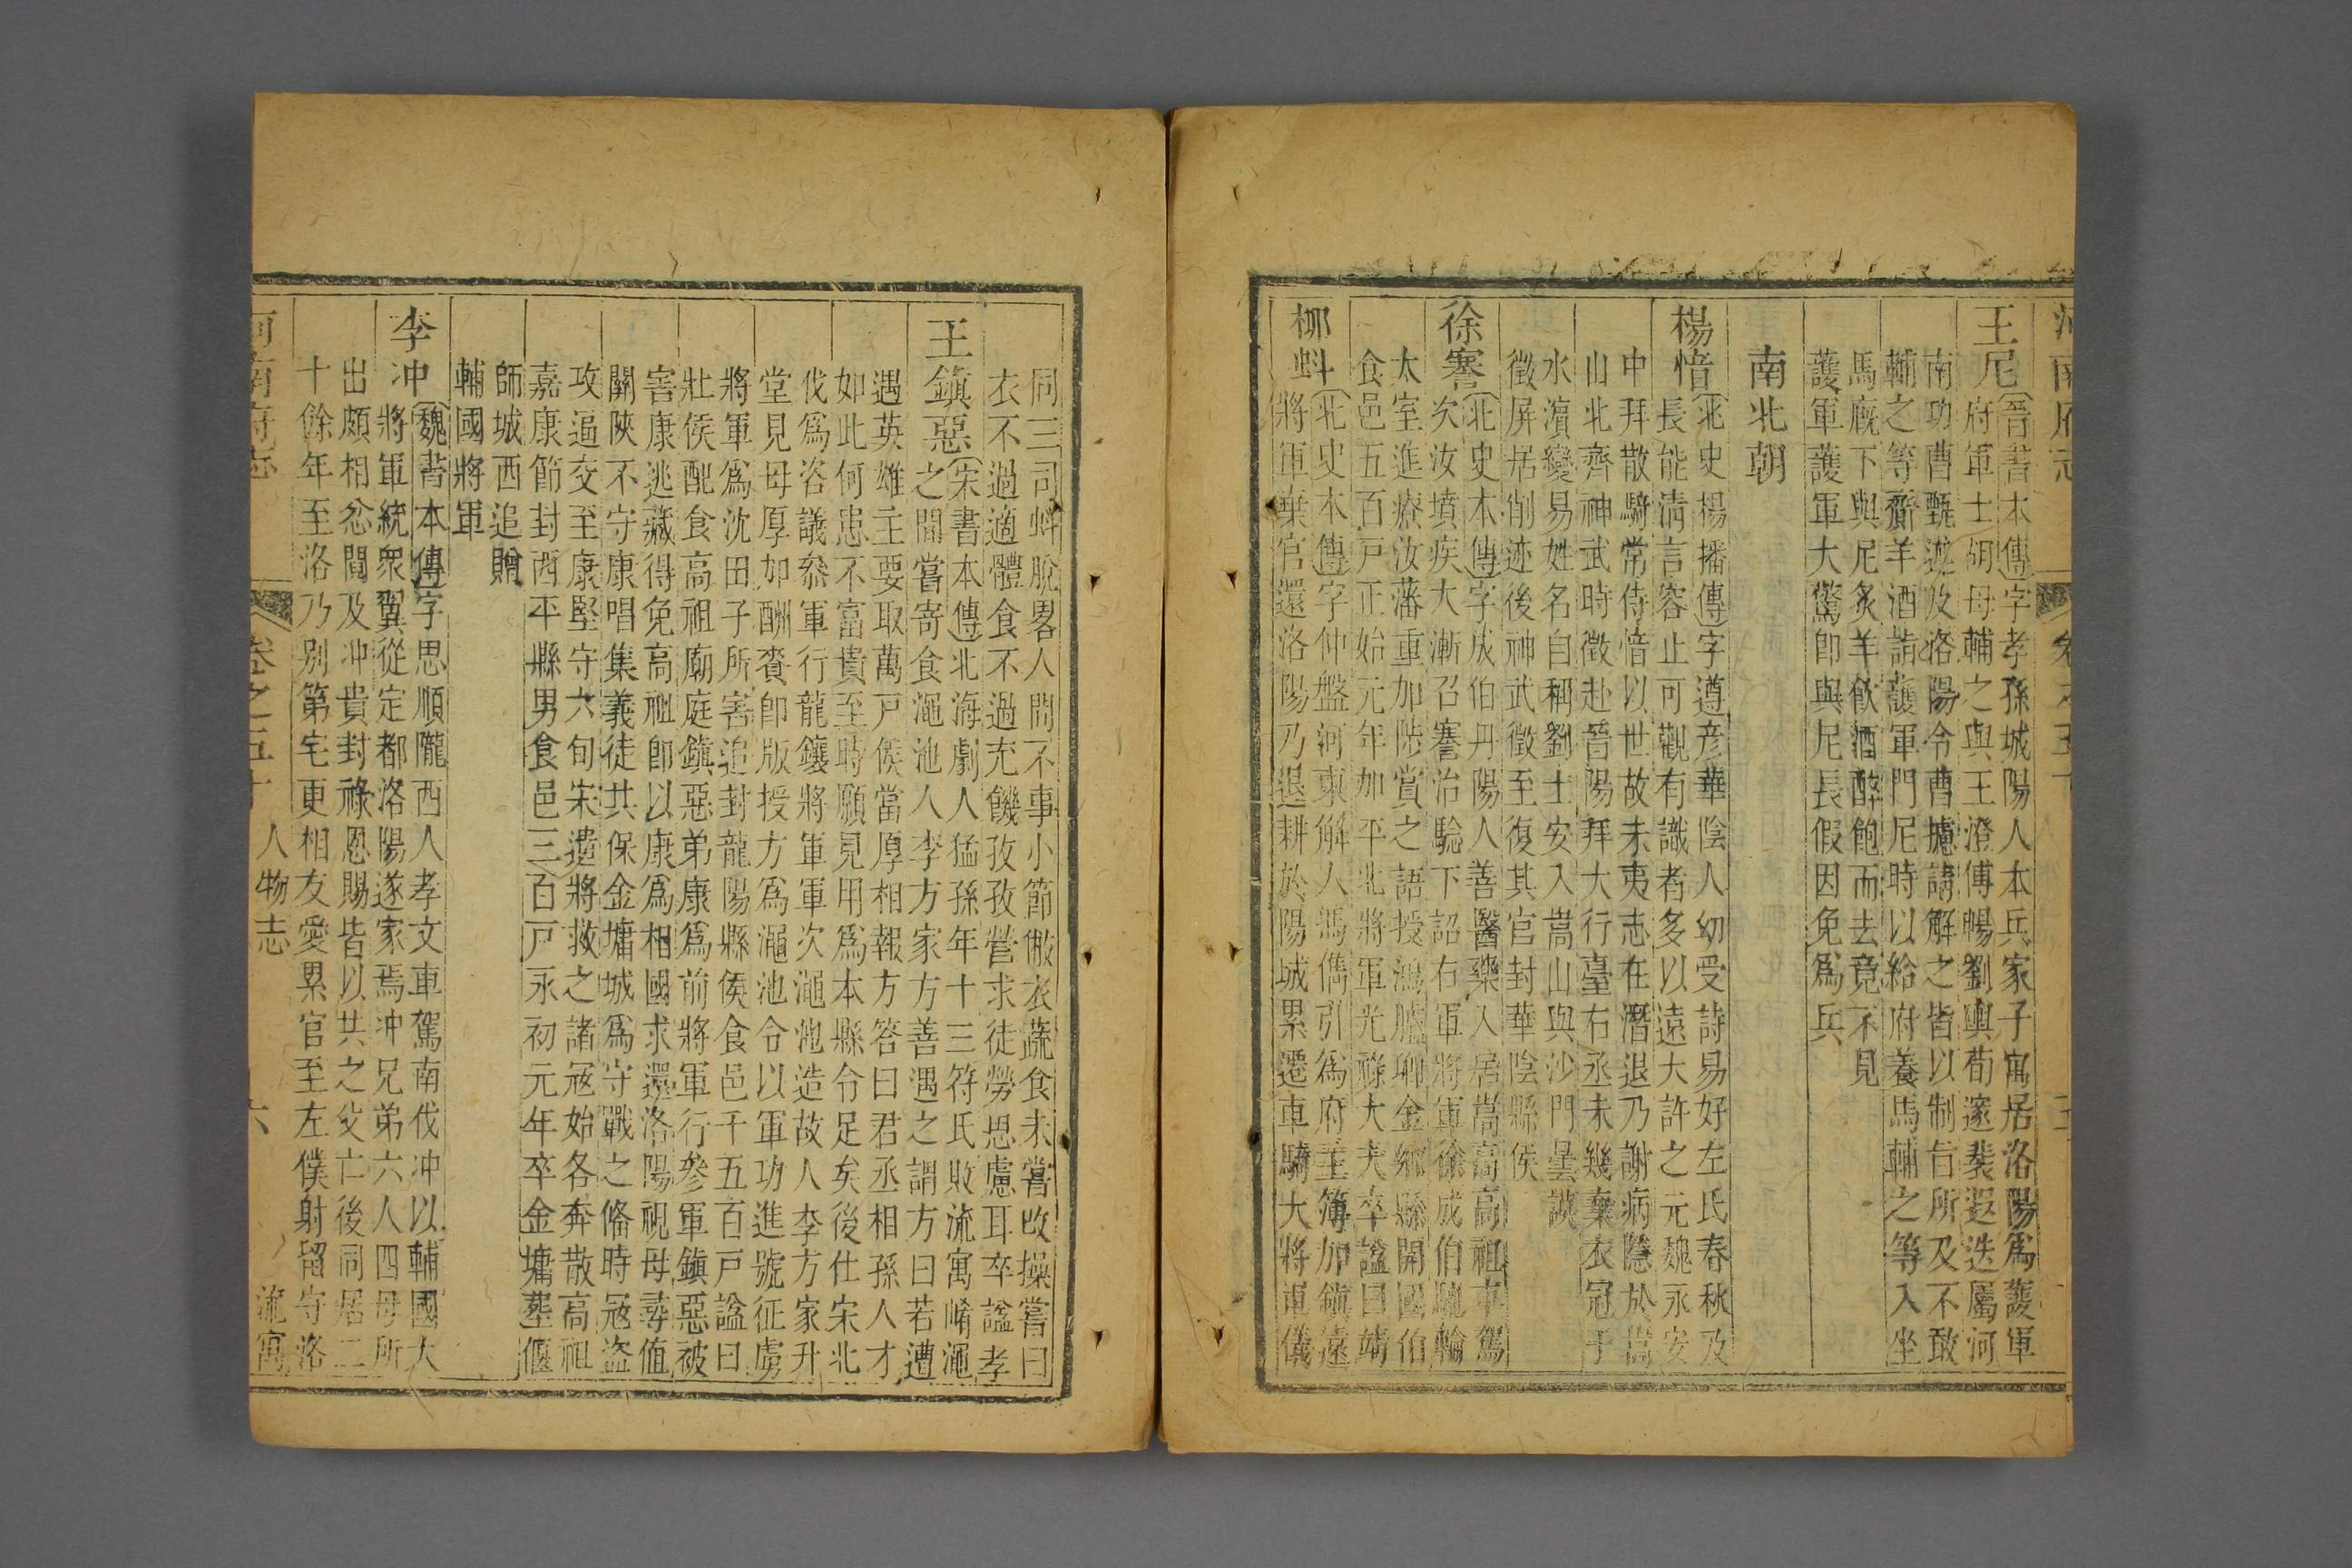 河南府志 卷之五十 五
王尼〔晉書本傳〕字孝孫城陽人本兵家子寓居洛陽爲護軍
府軍士胡母輔之與王澄傅暢劉輿荀邃裴遐迭屬河
南功曹甄述及洛陽令曹攄請解之皆以制旨所及不敢
輔之等齎羊酒詣護軍門尼時以給府養馬輔之等入坐
馬廐下與尼炙羊飲酒醉飽而去竟不見
護軍護軍大驚卽與尼長假因免爲兵
南北朝
楊愔〔北史楊播傳〕字遵彥華陰人幼受詩易好左氏春秋及
長能淸言容止可觀有識者多以遠大許之元魏永安
中拜散騎常侍愔以世故未夷志在潛退乃謝病隱於嵩
山北齊神武時徵赴晉陽拜大行臺右丞未幾棄衣冠于
水濵變易姓名自稱劉士安入嵩山與沙門曇謨
徵屏居削迹後神武徵至復其官封華陰縣侯
徐謇〔北史本傳〕字成伯丹陽人善醫藥入居嵩高高祖車駕
次汝墳疾大漸召謇治驗下詔右軍將軍徐成伯馳輪
太室進療汝藩重加陟賞之語授鴻臚卿金鄉縣開國伯
食邑五百戸正始元年加平北將軍光祿大夫卒諡曰靖
柳蚪〔北史本傳〕字仲盤河東解人馮儁引爲府主簿加鎭遠
將軍棄官還洛陽乃退耕於陽城累遷車騎大將軍儀
同三司蚪脫畧人間不事小節敝衣蔬食未嘗改操嘗曰
衣不過適體食不過充饑孜孜營求徒勞思慮耳卒諡孝
王鎭惡〔宋書本傳〕北海劇人猛孫年十三苻氏敗流寓崤澠
之間嘗寄食澠池人李方家方善遇之謂方曰若遭
遇英雄主要取萬戸侯當厚相報方答曰君丞相孫人才
如此何患不富貴至時願見用爲本縣令足矣後仕宋北
伐爲咨議叅軍行龍驤將軍軍次澠池造故人李方家升
堂見母厚加酬賚卽版授方爲澠池令以軍功進號征虜
將軍爲沈田子所害追封龍陽縣侯食邑千五百戸諡曰
壯侯配食高祖廟庭鎭惡弟康爲前將軍行參軍鎭惡被
害康逃藏得免高祖卽以康爲相國求還洛陽視母尋值
關陝不守康唱集義徒共保金墉城爲守戰之備時冦盜
攻逼交至康堅守六旬宋遣將救之諸冦始各奔散高祖
嘉康節封西平縣男食邑三百戸永初元年卒金墉葬偃
師城西追贈
輔國將軍
李冲〔魏書本傳〕字思順隴西人孝文車駕南伐冲以輔國大
將軍統衆翼從定都洛陽遂家焉冲兄弟六人四母所
出頗相忿閱及冲貴封祿恩賜皆以共之父亡後同居二
十餘年至洛乃別第宅更相友愛累官至左僕射留守洛
河南府志 卷之五十 人物志 六 流寓